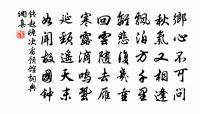 鄉心不可問
秋氣又相逢
飄泊方千里
離悲復幾重
回雲隨去雁
寒露滴鳴蛩
延頸遙天末
如聞故國鐘
錢起晚次宿預館詞典
網集